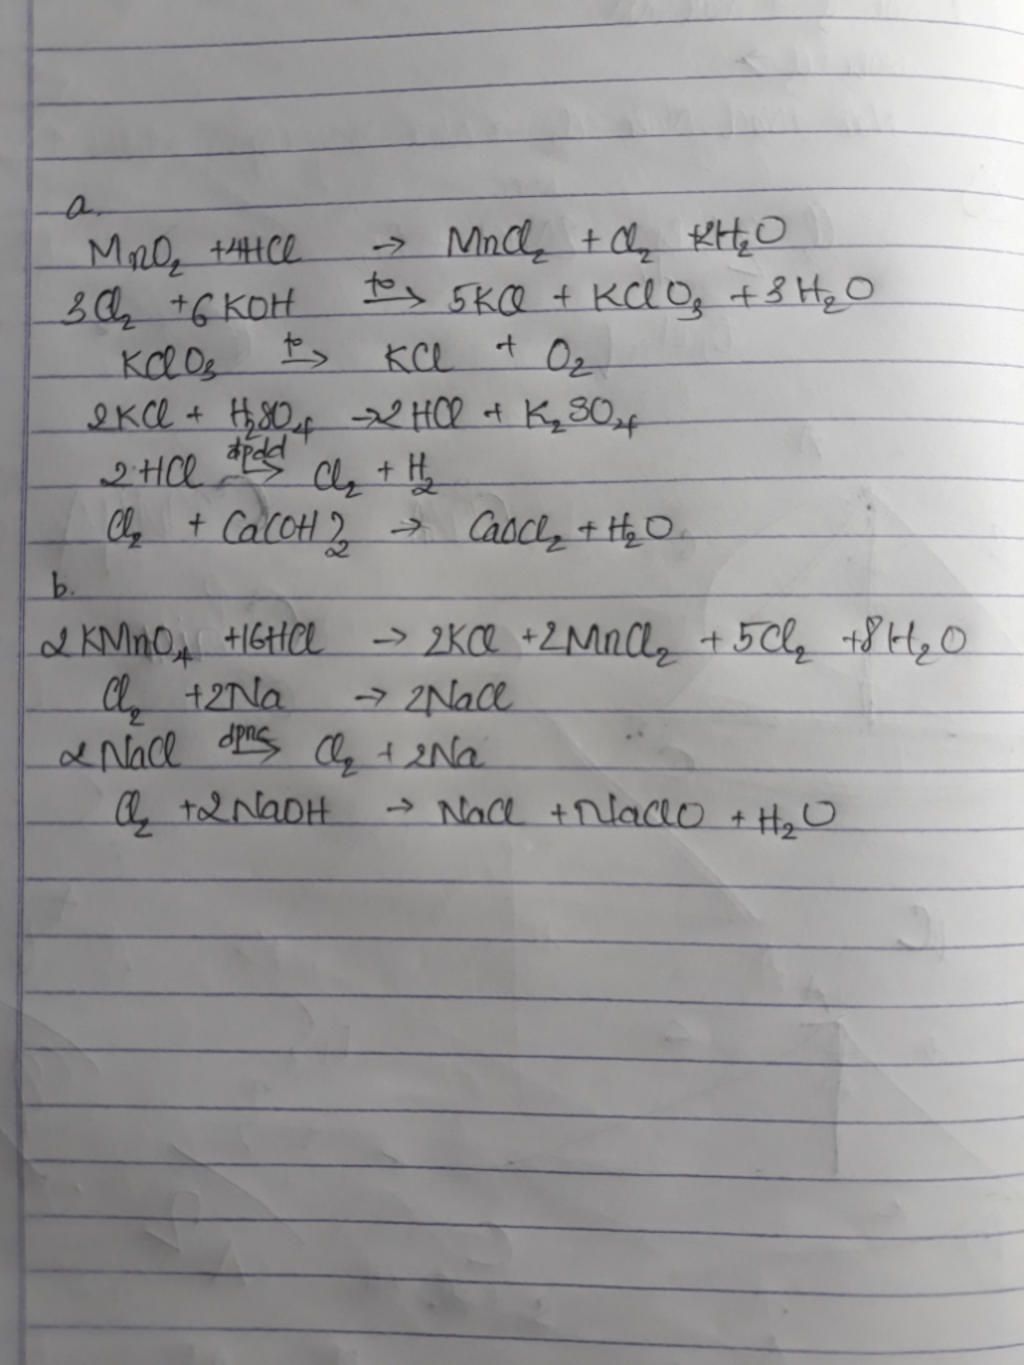 a.
MnO₂ +4HCl → MnCl₂ + Cl₂ +2H₂O
3Cl₂ +6KOH t° → 5KCl + KClO₃ +3H₂O
KClO₃ t° → KCl + O₂
2KCl + H₂SO₄ → 2HCl + K₂SO₄
2HCl đpdd → Cl₂ + H₂
Cl₂ + Ca(OH)₂ → CaOCl₂ + H₂O
b.
2KMnO₄ +16HCl → 2KCl +2MnCl₂ +5Cl₂ +8H₂O
Cl₂ +2Na → 2NaCl
2NaCl đpnc → Cl₂ + 2Na
Cl₂ +2NaOH → NaCl +NaClO + H₂O